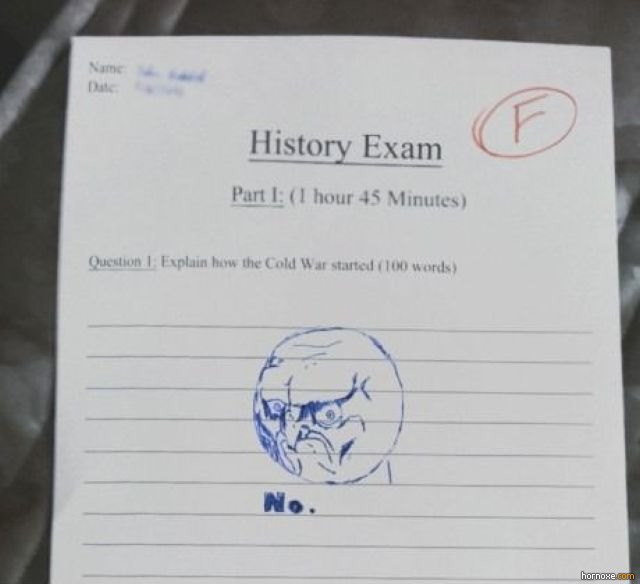 Name:
Date:
F
History Exam
Part I: (1 hour 45 Minutes)
Question 1: Explain how the Cold War started (100 words)
No.
hornoxe.com